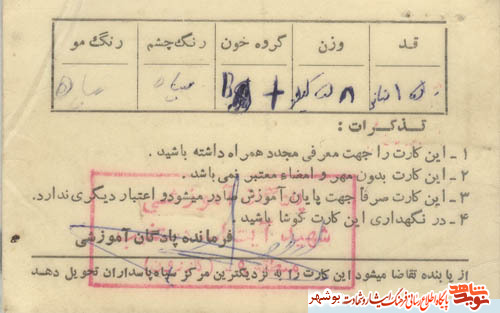 قد وزن گروه خون رنگ چشم رنگ مو
B + سیاه سیاه
تذکرات :
۱ ـ این کارت را جهت معرفی مجدد همراه داشته باشید .
۲ ـ این کارت بدون مهر و امضاء معتبر نمی باشد .
۳ ـ این کارت صرفاً جهت پایان آموزش صادر میشود و اعتبار دیگری ندارد.
۴ ـ در نگهداری این کارت کوشا باشید .
فرمانده پادگان آموزشی
شهید آیت
از یابنده تقاضا میشود این کارت را به نزدیکترین مرکز سپاه پاسداران تحویل دهد
نوید شاهد
پایگاه اطلاع رسانی فرهنگ ایثار و شهادت بوشهر